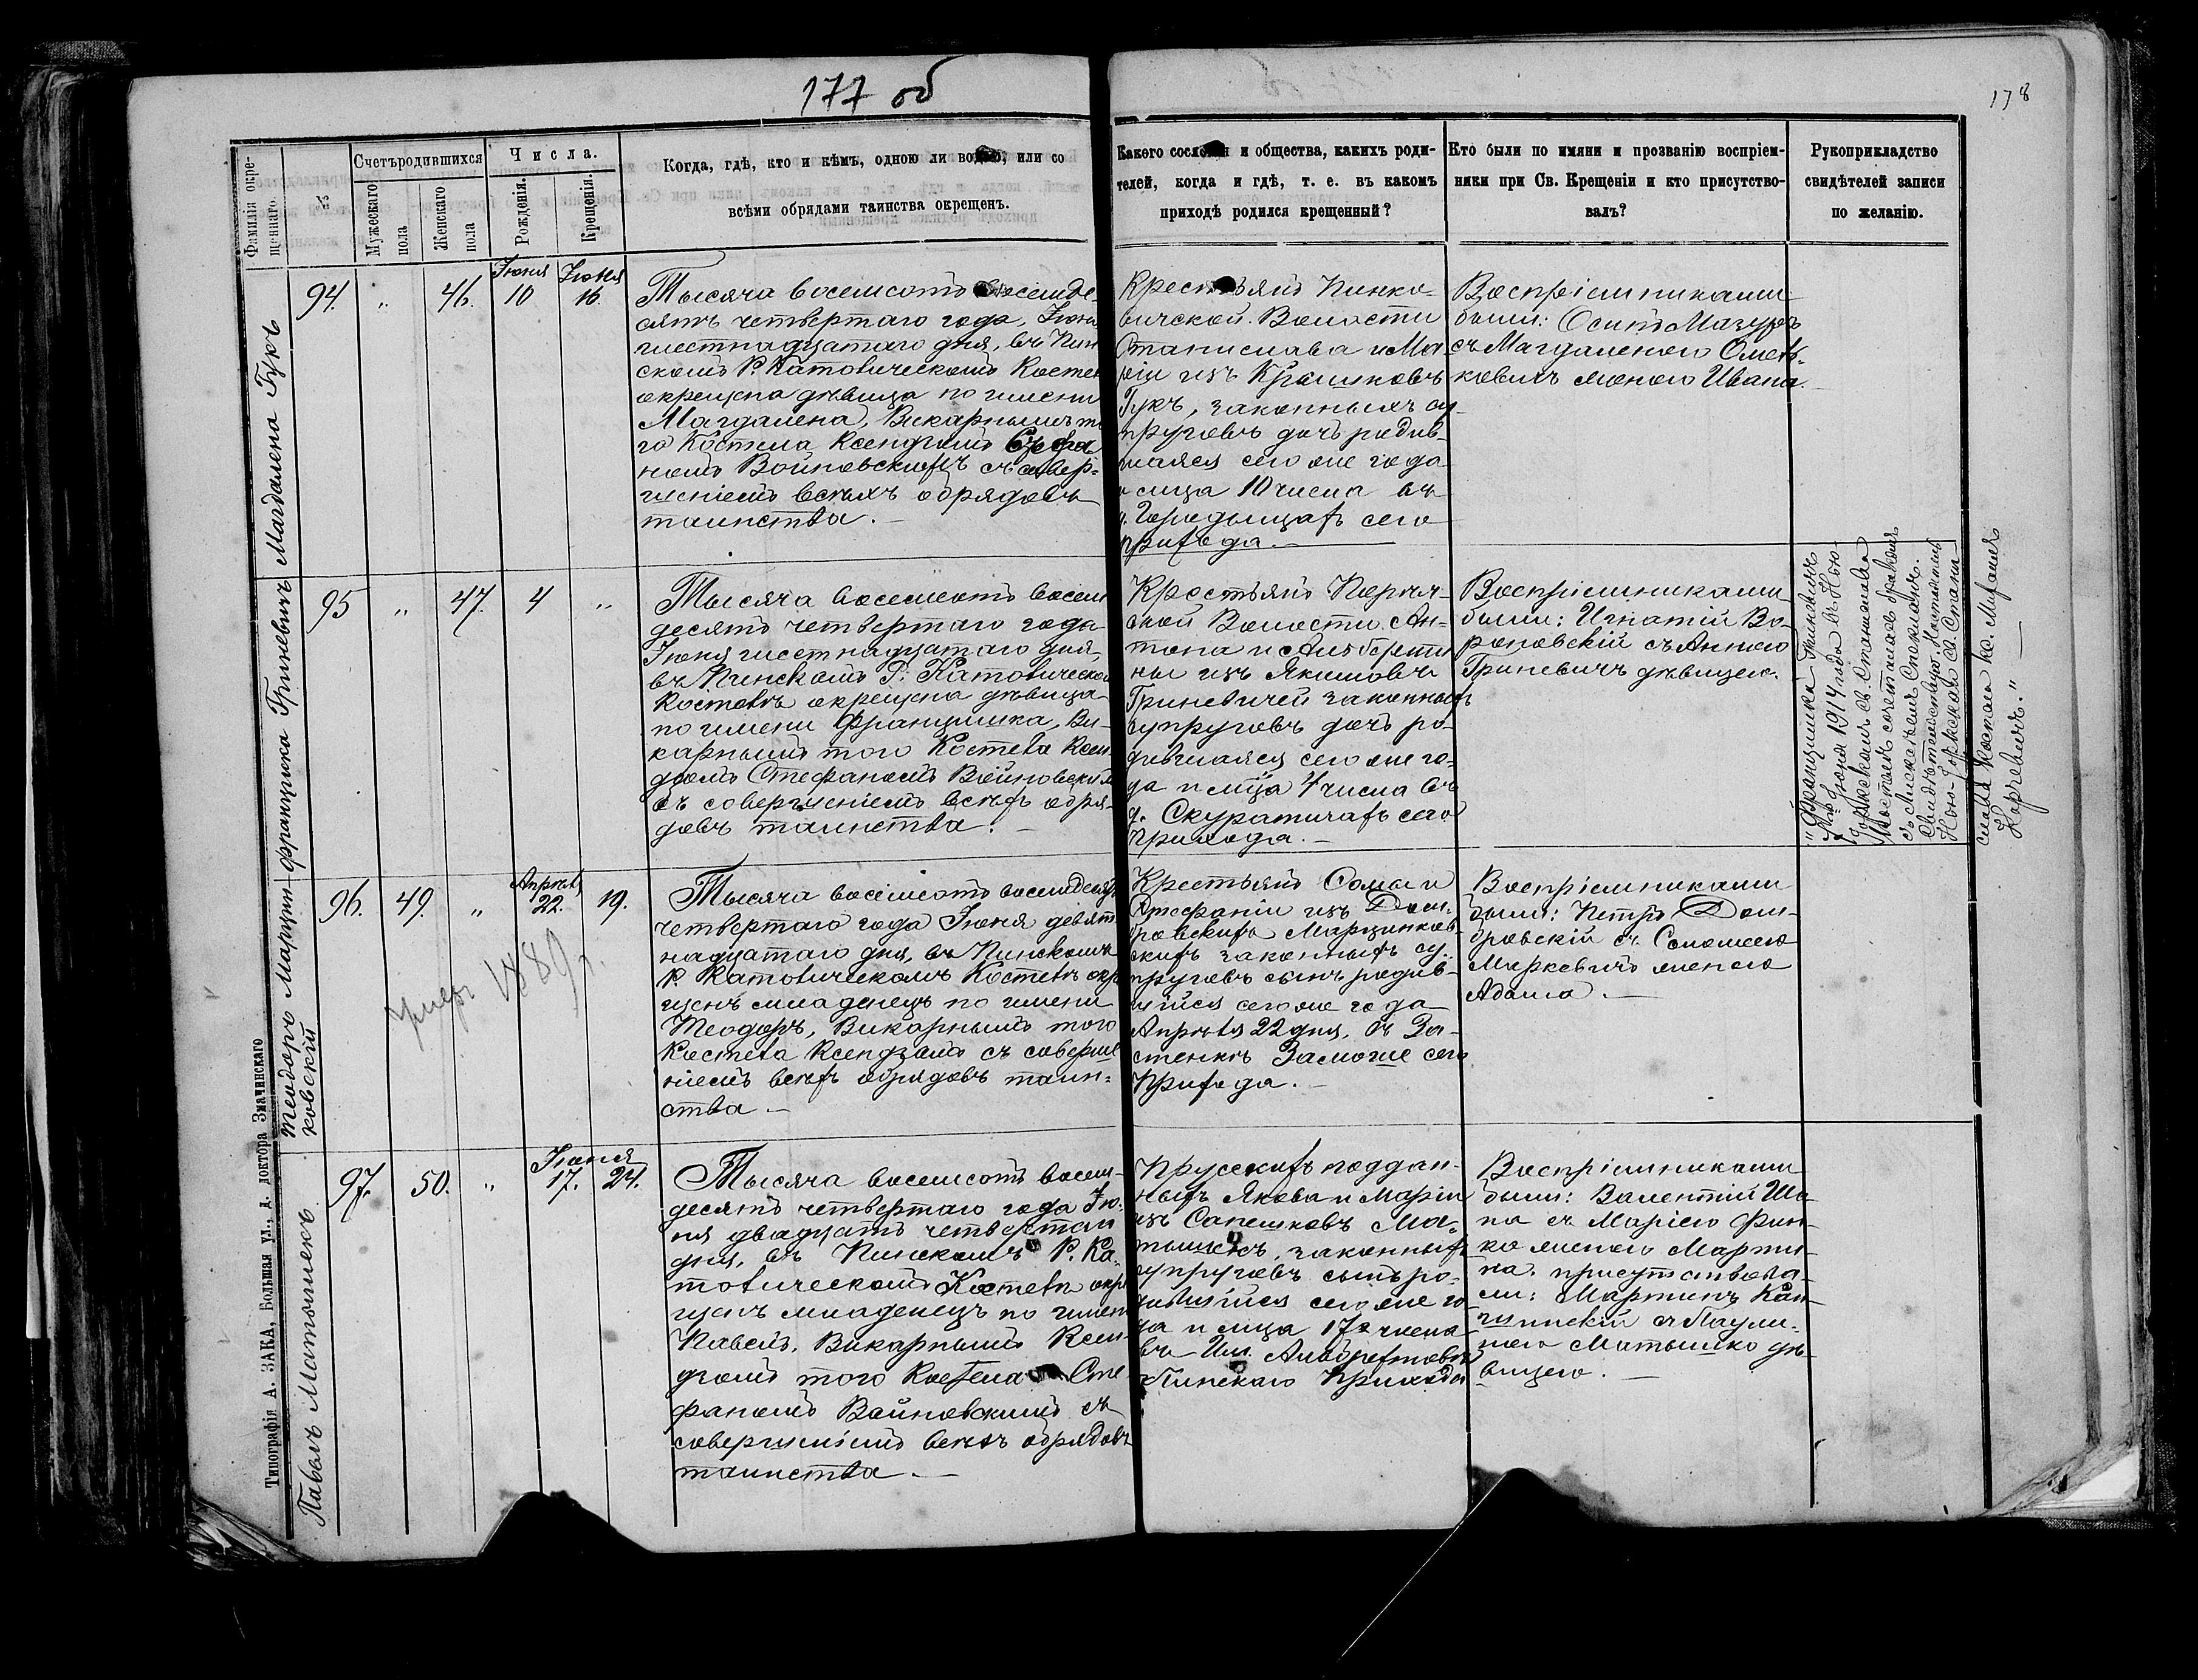 177 об
178
Фамилія окре-
щеннаго.
№
Счетъ родившихся
Мужескаго
пола
Женскаго
пола
Числа.
Рожденія.
Крещенія.
Когда, гдѣ, кто и кѣмъ, одною ли водою, или со
всѣми обрядами таинства окрещенъ.
Какого сословія и общества, какихъ роди-
телей, когда и гдѣ, т. е. въ какомъ
приходѣ родился крещенный?
Кто были по имяни и прозванію воспріем-
ники при Св. Крещеніи и кто присутство-
валъ?
Рукоприкладство
свидѣтелей записи
по желанію.
Магдалена Гукъ
94. " 46. Іюня 10 Іюня 16.
Тысяча восемсотъ восемде-
сятъ четвертаго года, Іюня
шестнадцатаго дня, въ Пин
скомъ Р. Католическомъ Костел
окрещена дѣвица по имени
Магдалена, Викарнымъ то
го Костела Ксендзомъ Стефа
номъ Войновскимъ съ совер-
шеніемъ всѣхъ обрядовъ
таинства. —
Крестьянъ Пинко-
вичской Волости
Станислава и Ма-
ріи изъ
Гукъ, законныхъ су-
пруговъ дочь родив-
шаяся сего же года
и мсца 10 числа въ
д. Городищахъ сего
прихода. —
Воспріемниками
были: Осипъ Мазуръ
съ Магдаленою
женою Ивана.
Францишка Гриневичъ
95 " 47. 4 "
Тысяча восемсотъ восем
десятъ четвертаго года
Іюня шестнадцатаго дня,
въ Пинскомъ Р. Католическом
Костелѣ окрещена дѣвица
по имени Францишка, Ви-
карнымъ того Костела Ксен
дзомъ Стефаномъ Войновским
съ совершеніемъ всѣхъ обря-
довъ таинства. —
Крестьянъ
ской Волости Ан-
тона и Альберти
ны изъ Якимовъ
Гриневичей законныхъ
супруговъ дочь ро-
дившаяся сего же го-
да и мсца 4 числа въ
д. Скуратичахъ сего
прихода. —
Воспріемниками
были: Игнатій Во
роновскій съ Анною
Гриневичъ дѣвицею.
"Францишка Гриневичъ
Іюня 1914 года въ Нью-
Іоркскомъ Св. Станислава
Костелѣ сочеталась бракомъ
съ
Свидѣтельство Настоятеля
Нью-Іоркскаго Св. Стани
слава Костела Кс.
" —
Теодоръ Марцин-
ковскій
96. 49. " Апрѣля 22. 19.
Умеръ 1889 г.
Тысяча восемсотъ восемдесятъ
четвертаго года Іюня девят
надцатаго дня, въ Пинскомъ
Р. Католическомъ Костелѣ окре
щенъ младенецъ по имени
Теодоръ, Викарнымъ того
Костела Ксендзомъ съ соверше
ніемъ всѣхъ обрядовъ таин-
ства —
Крестьянъ Фомы и
Стефаніи изъ Дом-
бровскихъ Марцинков-
скихъ законныхъ су-
пруговъ сынъ родив-
шійся сего же года
Апрѣля 22 дня, въ За-
стенкѣ Замошье сего
прихода. —
Воспріемниками
были: Петръ Дом-
бровскій съ Саломеею
Маркевичъ женою
Адама. —
Павелъ Матышекъ
97. 50. " Іюня 17. 24.
Тысяча восемсотъ восем-
десятъ четвертаго года Ію-
ня двадцать четвертаго
дня, въ Пинскомъ Р. Ка-
толическомъ Костелѣ окре
щенъ младенецъ по имени
Павелъ, Викарнымъ Ксен-
дзомъ того Костела Сте
фаномъ Войновскимъ съ
совершеніемъ всѣхъ обрядовъ
таинства. —
Прусскихъ поддан-
ныхъ Якова и Маріи
изъ Сапешковъ Ма-
тышекъ, законныхъ
супруговъ сынъ ро-
дившійся сего же го
да и мсца 17 числа
въ Им. Альбрехтовѣ
Пинскаго Прихода
Воспріемниками
были:
съ Маріею Фин-
ко женою Марти-
на. присутствова-
ли: Мартинъ
съ Паули-
ною Матышко дѣ-
вицею. —
Типографія А. ЗАКА, Большая ул., д. доктора Значинскаго